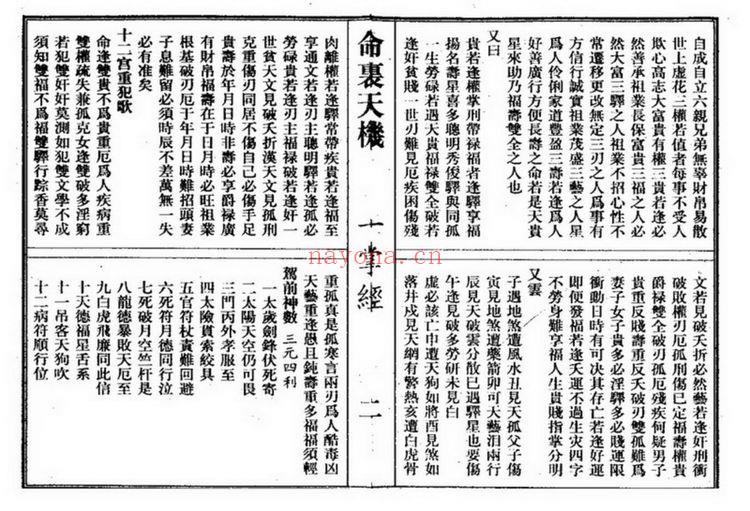 自成自立六親兄弟無辜財帛易散
世上虛花三權若值者每事不受人
欺心高志大富貴有權三貴若逢必
然善承祖業長保富貴三福之人必
然大富三驛之人祖業不招心性不
常遷移更改無定三刃之人爲事有
方信行誠實祖業茂盛三藝之人星
爲人伶俐家道豐盈三壽若逢人
好善廣行方便長壽之命若是天貴
星來助乃福壽雙全之人也
又曰
貴若逢權掌刑帶祿福者逢驛享福
揚名壽星喜多聰明秀俊驛與同孤
一生勞碌若遇天貴福祿雙全破若
逢奸貧賤一世刃難見厄疾困傷殘
文若見破夭折必然藝若逢奸刑衝
破敗權刃厄孤刑傷已定福壽權貴
爵祿雙全破刃孤厄殘疾何疑男子
貴重反賤壽重反夭破刃雙孤難爲
妻子女子貴多必淫驛多必賤運限
衝動日時有可決其存亡若逢好運
即便發福若逢夭運不過生灾四字
不勞身難享福人生貴賤指掌分明
又雲
子遇地煞遭風水丑見天孤父子傷
寅見地煞遭藥箭卯可天藝泪兩行
辰見天破雲分散巳遇驛星也要傷
午逢見破多勞研未見白
虛必該亡申遭天狗如將酉見煞如
落井戌見天網有警熱亥遭白虎骨
命裏天機
一掌經
二
肉離權若逢驛常帶疾貴若逢福至
享通文若逢刃主聰明驛若逢孤必
勞碌貴若逢刃主福祿破若逢奸一
世貧天文見破夭折漢天文見孤刑
克重傷刃同居不傷自己必傷手足
貴壽於年月日時非壽必享爵祿廣
有財帛福壽在于日月時必旺祖業
根基破刃厄于年月日時難招頭妻
子息難留必須時辰不差萬無一失
必有准矣
十二宮重犯歌
命逢雙貴不爲貴重厄爲人疾病重
雙權疏失兼孤克女逢雙破多淫窮
若犯雙奸奸莫測如犯雙文學不成
須知雙福不爲福雙驛行踪香莫尋
重孤真是孤寒言兩刃爲人酷毒凶
天藝重逢愚且鈍壽重多福福須輕
駕前神數 三元四利
一太歲劍鋒伏死寄
二太陽天空仍可畏
三門丙外孝服至
四太險貫索絞具
五官符杖責難回避
六死符月德同行泣
七死破月空竺杆是
八龍德暴敗天厄至
九白虎飛廉同此信
十天德福星舌系
十一吊客天狗吹
十二病符順行位
nayona.cn